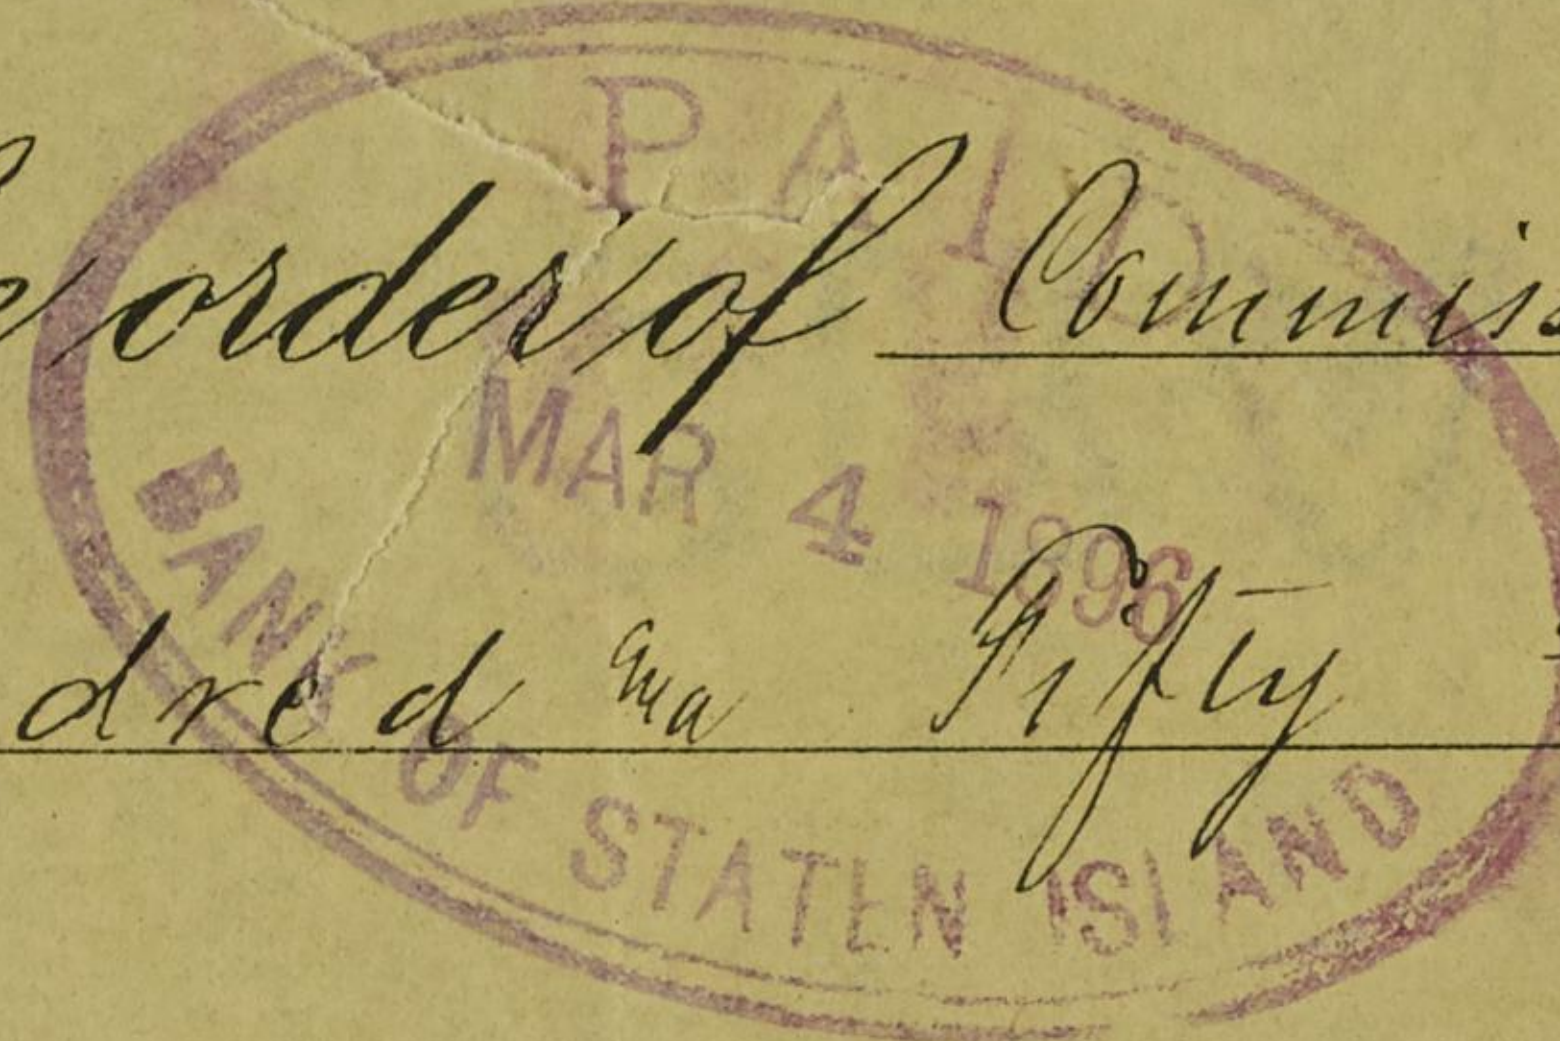 PAID
order of Commis
MAR 4 1896
dred Fifty
BANK OF STATEN ISLAND